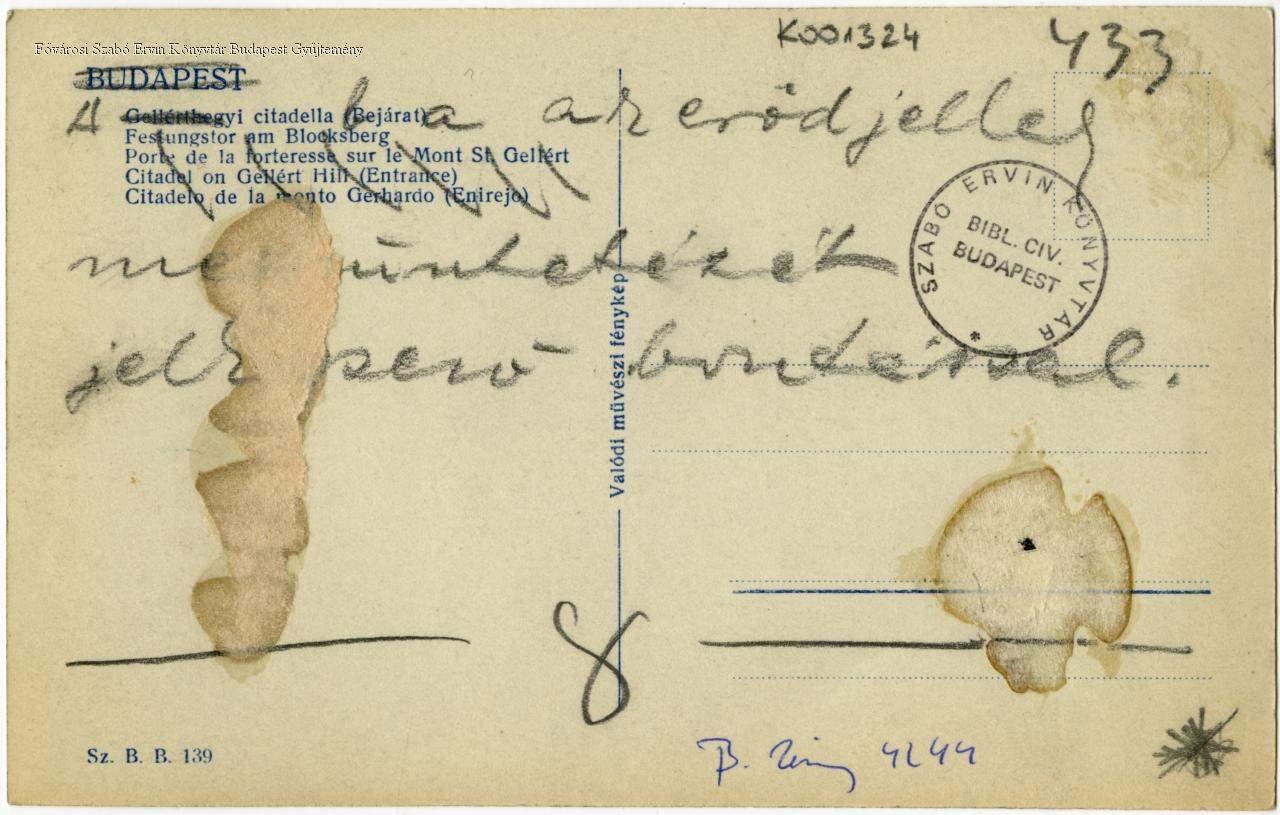 K001324
433
Fővárosi Szabó Ervin Könyvtár Budapest Gyűjtemény
BUDAPEST
Gellérthegyi citadella (Bejárat)
Festungstor am Blocksberg
Porte de la forteresse sur le Mont St. Gellért
Citadel on Gellért Hill (Entrance)
Citadelo de la monto Gerhardo (Enirejo)
A az erődjelleg
megszüntetését
jelképező bontással.
SZABÓ ERVIN KÖNYVTÁR
BIBL. CIV.
BUDAPEST
*
Valódi művészi fénykép
8
Sz. B. B. 139
B. 4244